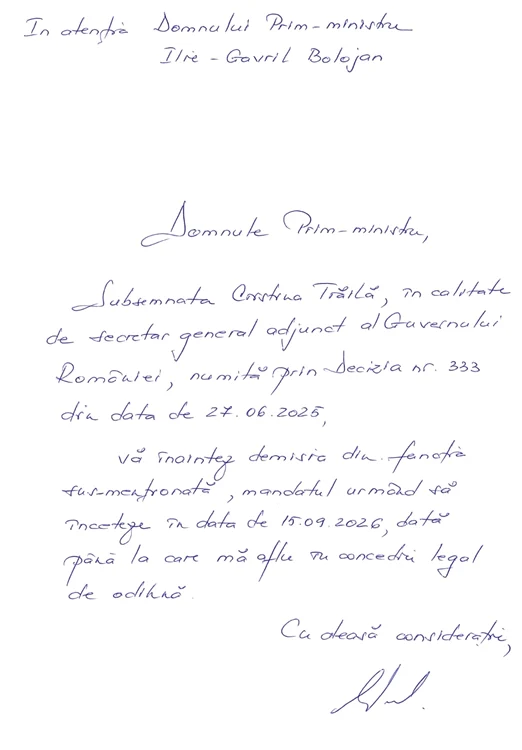 In atenția Domnului Prim-ministru
Ilie-Gavril Bolojan
Domnule Prim-ministru,
Subsemnata Cristina Trăilă, în calitate
de secretar general adjunct al Guvernului
României, numită prin Decizia nr. 333
din data de 27.06.2025,
vă înaintez demisia din funcția
sus-menționată, mandatul urmând să
înceteze în data de 15.09.2026, dată
până la care mă aflu în concediu legal
de odihnă.
Cu aleasă considerație,